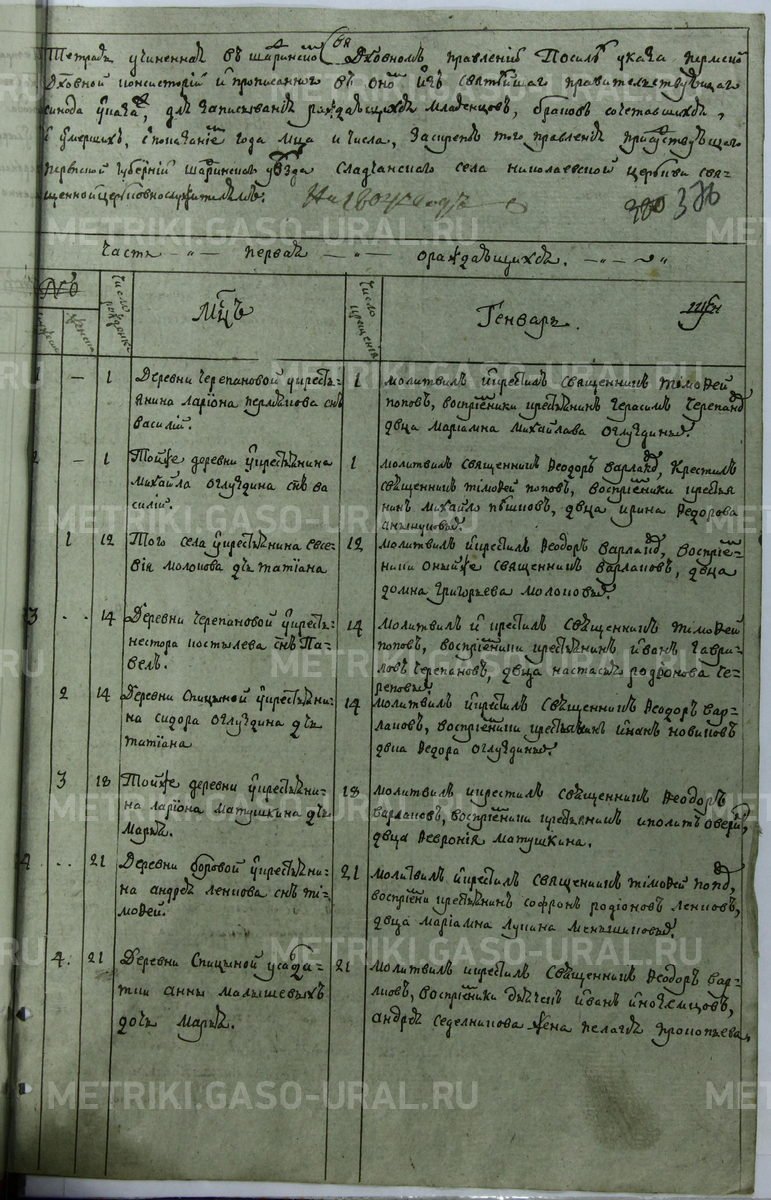 Тетрадь учиненная въ шадринскомъ Духовномъ правленіи По силѣ указа пермской
Духовной консисторіи и прописаннаго въ ономъ изъ святѣйшаго правительствующаго
синода указа, для записыванія раждающихся младенцовъ, браковъ сочетавшихся,
и умершихъ, с показаніемъ года мца и числа, Заскрепою того правленія присудствующаго
пермской губерніи шадринскаго уѣзда Сладчанскаго села николаевской церкви свя-
щенноцерковнослужителямъ. На 1802 годъ 376
Часть первая о раждающихся.
№
число рожденія
Мцъ
число крещенія
Генварь
1 — 1 Деревни Черепановой у крестья-
янина ларіона пермякова снъ
василій.
1 молитвилъ и крестилъ священникъ тімоѳей
поповъ, воспріемники крестьянинъ герасимъ Черепановъ
двца Маріамна михайлова Оглуздиныхъ.
2 — 1 Тойже деревни у крестьянина
михайла оглуздина снъ ва
силій.
1 молитвилъ священникъ Ѳеодоръ варлаковъ, Крестилъ
священникъ тімоѳей поповъ, воспріемники крестья
нинъ михайло пѣшковъ, двца ирина Ѳедорова
1 12 Того села у крестьянина евсе-
вія молокова дчь татіана
12 молитвилъ и крестилъ Ѳеодоръ варлаковъ, воспріем-
ники онойже священникъ варлаковъ, двца
домна григорьева молоковыхъ.
3 .. 14 Деревни черепановой у крестья-
нестора костылева снъ Па-
велъ.
14 Молитвилъ и крестилъ священникъ тімоѳей
поповъ, воспріемники крестьянинъ иванъ гаври-
ловъ черепановъ, двца настасья родионова че-
реповыхъ
2 14 Деревни Спицыной у крестьяни-
на сидора оглуздина дчь
татіана
14 молитвилъ и крестилъ священникъ Ѳеодоръ вар-
лаковъ, воспріемники крестьянинъ иванъ новиковъ
двца Ѳедора оглуздиныхъ.
3 18 Тойже деревни у крестьяни-
на ларіона Матушкина дчь
Марья.
18 молитвилъ и крестилъ священникъ Ѳеодоръ
варлаковъ, воспріемники крестьянинъ иполитъ
двца Ѳевронія матушкина.
4 .. 21 Деревни боровой у крестьяни-
на андрея ленкова снъ ті-
моѳей.
21 Молитвилъ и крестилъ священникъ тімоѳей поповъ,
воспріемники крестьянинъ софронъ родіоновъ ленковъ,
двца маріамна лукина меньшиковыхъ.
4. 21 Деревни Спицыной у солда-
тки анны малышевыхъ
дочь Марья.
21 молитвилъ и крестилъ священникъ Ѳеодоръ вар-
лаковъ, воспріемники дьячекъ иванъ иноземцовъ,
андрея седелникова жена пелагея прокопьева,
METRIKI.GASO-URAL.RU